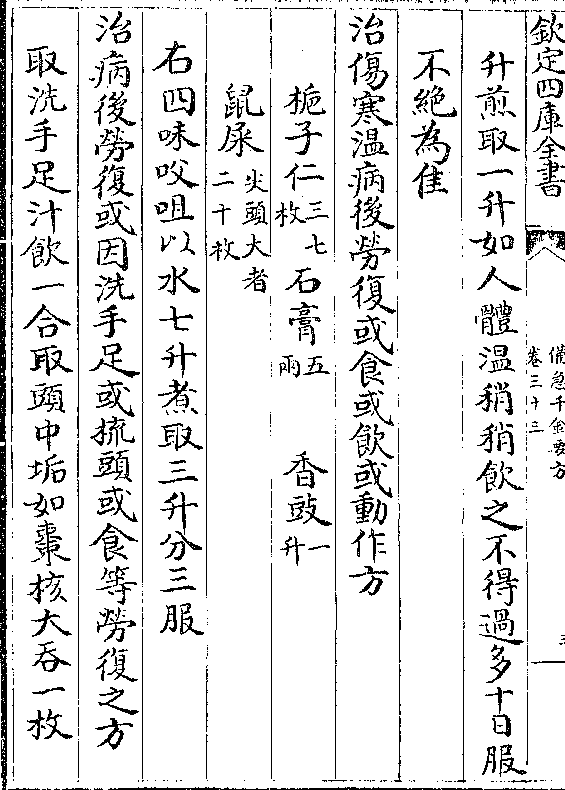 欽定四庫全書
備急千金要方
卷三十三
升煎取一升如人體溫稍稍飲之不得過多十日服
不絶為佳
治傷寒温病後勞復或食或飲或動作方
梔子仁三七枚 石膏五兩 香豉一升
鼠屎尖頭大者二十枚
右四味㕮咀以水七升煮取三升分三服
治病後勞復或因洗手足或梳頭或食等勞復之方
取洗手足汁飲一合取頭中垢如棗核大吞一枚